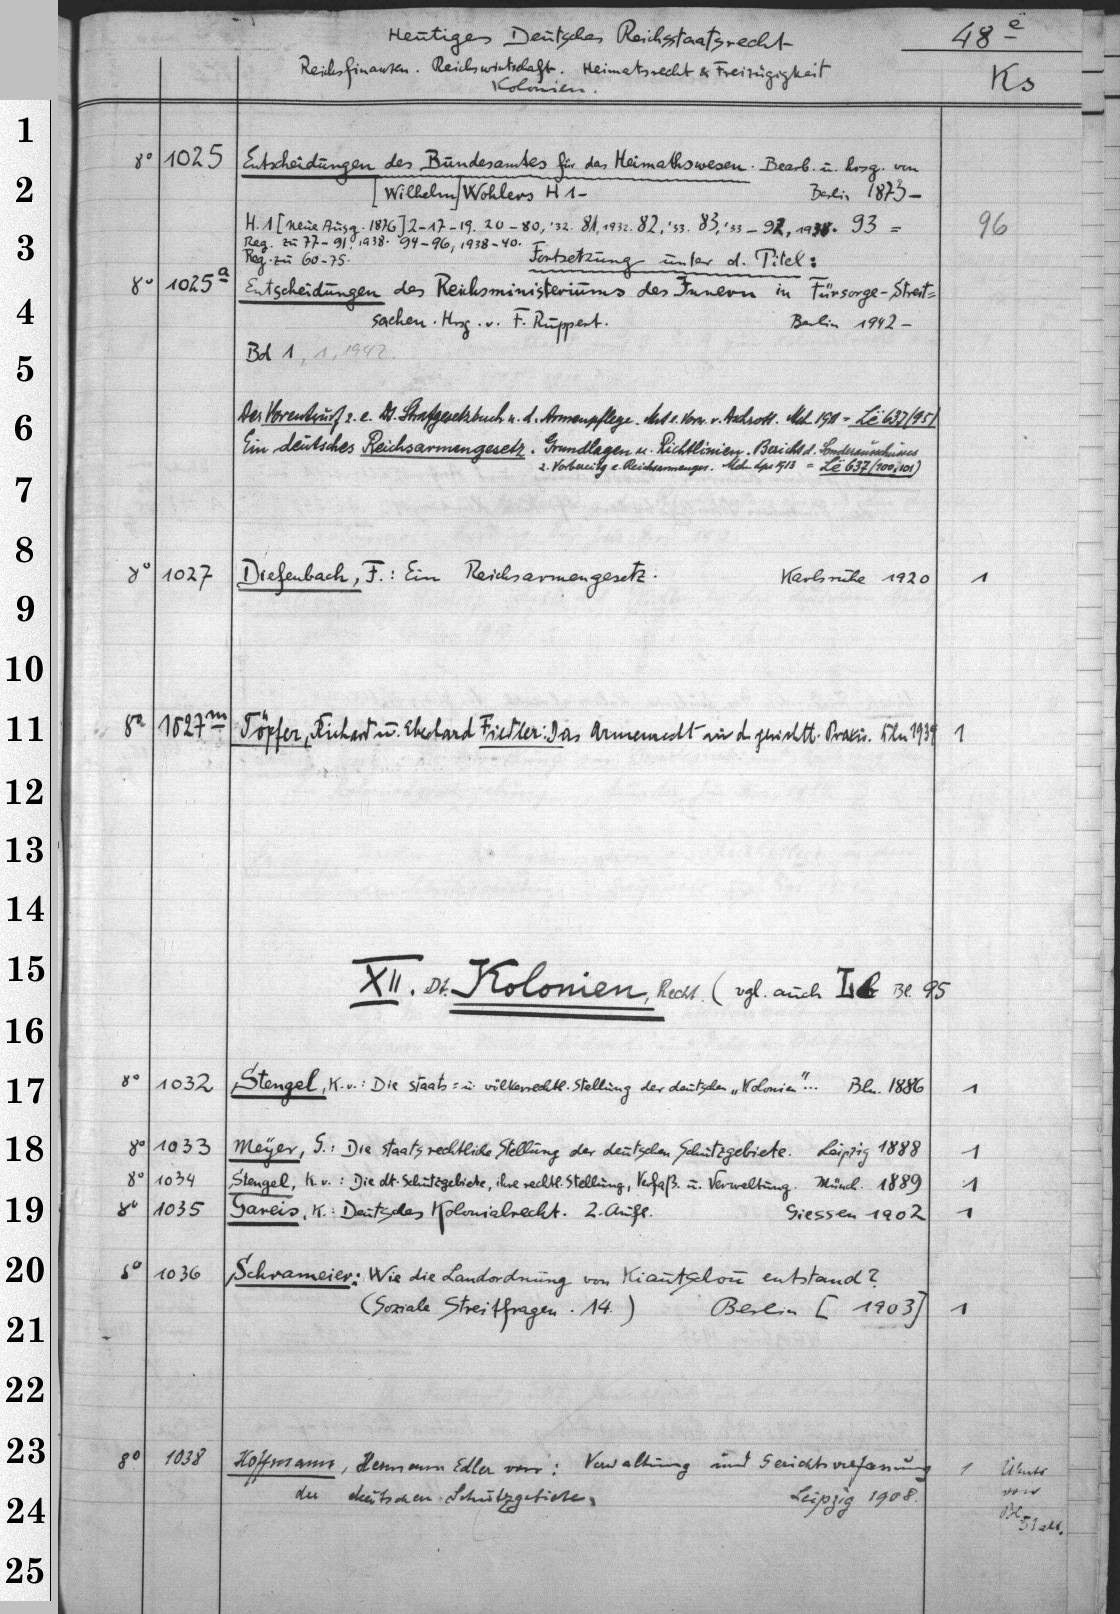 Heutiges Deutsches Reichsstaatsrecht 48 e
Reichsfinanzen. Reichswirtschaft. Heimatsrecht & Freizügigkeit
Kolonien. Ks
1
8° 1025 Entscheidungen des Bundesamtes für das Heimathswesen. Bearb. u. hrsg. von
2
[Wilhelm] Wohlers H 1- Berlin 1873-
H. 1 [neue Ausg. 1876] 2-17-19. 20-80, '32. 81, 1932. 82, '33. 83, '33-92, 1938. 93 = 96
3
Reg. zu 77-91, 1938. 94-96, 1938-40.
Reg. zu 60-75. Fortsetzung unter d. Titel:
8° 1025 a Entscheidungen des Reichsministeriums des Innern in Fürsorge-Streit=
4
sachen. Hrsg. v. F. Ruppert. Berlin 1942-
Bd 1, 1, 1942.
5
6
Der Vorentwurf z. e. Dt. Strafgesetzbuch u. d. Armenpflege. v. Aschrott. 1911 = Lë 637/95)
Ein deutsches Reichsarmengesetz. Grundlagen u. Richtlinien. Bericht d. Sonderausschusses
z. Vorbereitg e. Reichsarmenges. Mch. Lpz 1913 = Lë 637/100, 101)
7
8
8° 1027 Diefenbach, F.: Ein Reichsarmengesetz. Karlsruhe 1920 1
9
10
11
8° 1027 m Töpfer, Richard u. Eberhard Fiedler: Das Armenrecht in d. gerichtl. Praxis. Bln 1939 1
12
13
14
15
XII. Dt. Kolonien, Recht. (vgl. auch Bl. 95
16
17
8° 1032 Stengel, K. v.: Die staats= u. völkerrechtl. Stellung der deutschen „Kolonien"... Bln. 1886 1
18
8° 1033 Meÿer, G.: Die staatsrechtliche Stellung der deutschen Schutzgebiete. Leipzig 1888 1
8° 1034 Stengel, K. v.: Die dt. Schutzgebiete, ihre rechtl. Stellung, Verfaß. u. Verwaltung. Münch. 1889 1
19
8° 1035 Gareis, K.: Deutsches Kolonialrecht. 2. Aufl. Giessen 1902 1
20
8° 1036 Schrameier: Wie die Landordnung von Kiautschou entstand?
(Soziale Streitfragen. 14.) Berlin [1903] 1
21
22
23
8° 1038 Hoffmann, Hermann Edler von: Verwaltung und Gerichtsverfassung 1
24
der deutschen Schutzgebiete. Leipzig 1908.
von
Bl.
51 alt.
25